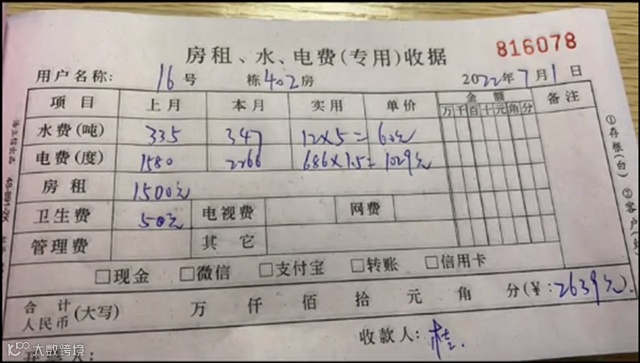 房租、水、电费(专用)收据 816078
用户名称: 16号 栋402房 2022年7月1日
项目 上月 本月 实用 单价 金额 备注
万 千 百 十 元 角 分
水费(吨) 335 347 12×5= 60元
电费(度) 1580 2266 686×1.5= 1029元
房租 1500元
卫生费 50元 电视费 网费
管理费 其它
□现金 □微信 □支付宝 □转账 □信用卡
合计人民币 (大写) 万 仟 佰 拾 元 角 分(¥:2639元)
收款人: 桂
①存根(白)
③客户
48-891-2K
大数跨境